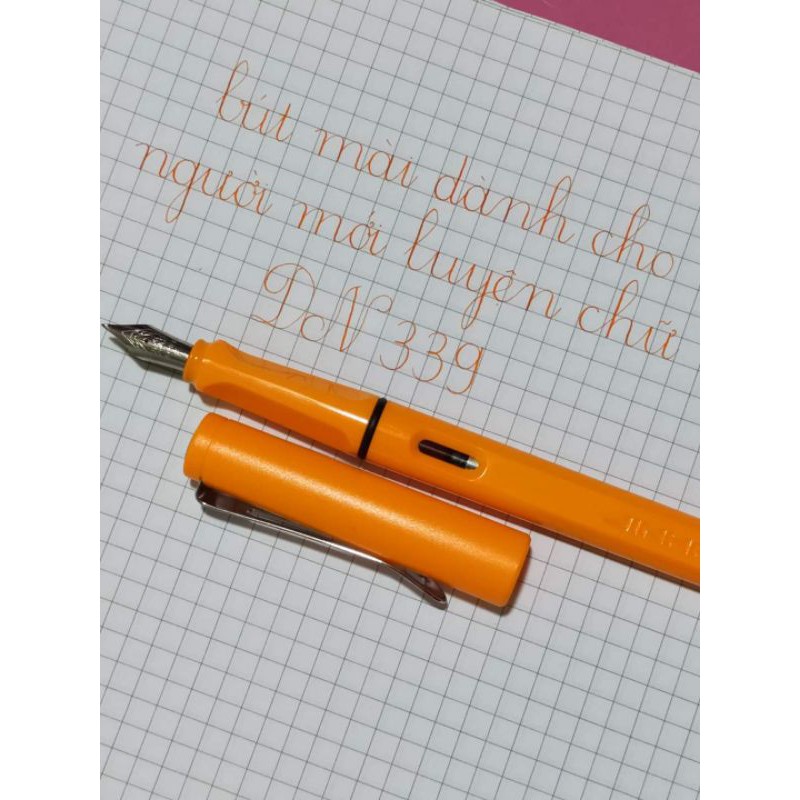 bút mài dành cho
người mới luyện chữ
DN 339